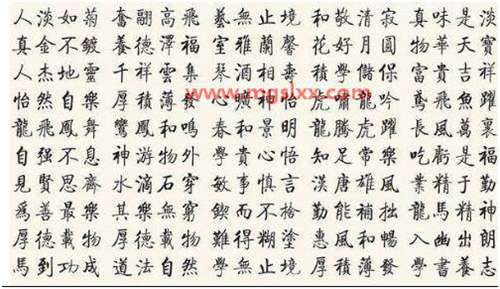 人淡如菊 奮翮高飛 藝無止境 和敬清寂 真味是淡
真金不鍍 養德澤福 室雅蘭馨 花好月圓 物華天寶
人杰地靈 千祥雲集 琴酒相壽 積學儲保 富貴吉祥
www.mgslxx.com
怡然自樂 厚積薄發 心曠神怡 虎嘯龍吟 鳶飛魚躍
龍飛鳳舞 鸞鳳和鳴 春和景明 龍騰虎躍 長風萬裏
自强不息 神游物外 學貴心悟 知足常樂 吃虧是福
見賢思齊 水滴石穿 敏事慎言 漢唐雄風 業精于勤
爲善最樂 其樂無窮 鍥而不捨 勤能補拙 龍馬精神
厚德載物 厚德載物 難得糊塗 惠風和暢 入幽出朗
馬到功成 道法自然 學無止境 厚積薄發 學書養志